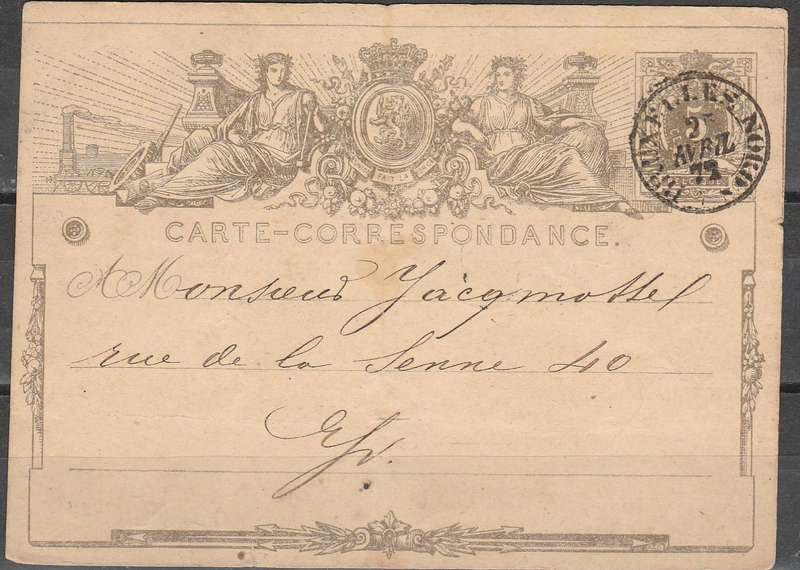 BRUXELLES NORD
25
AVRIL
72
5
CARTE-CORRESPONDANCE.
A Monsieur Jacqmottel
rue de la Senne 40